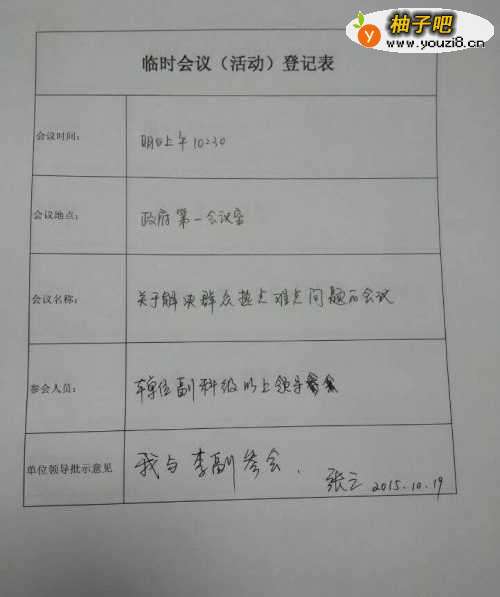 柚子吧
www.youzi8.cn
临时会议（活动）登记表
会议时间：
明日上午10:30
会议地点：
政府第一会议室
会议名称：
关于解决群众热点难点问题的会议
参会人员：
单位副科级以上领导
单位领导批示意见
我与李副参会.
张三 2015.10.19